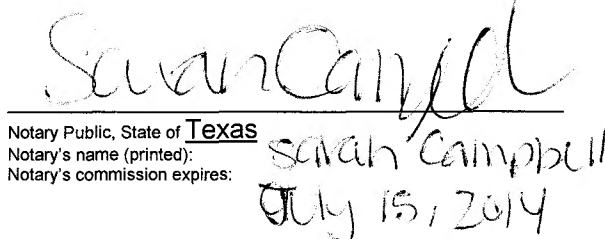 Sarah Campbell
Notary Public, State of Texas
Notary's name (printed): Sarah Campbell
Notary's commission expires: July 15, 2014